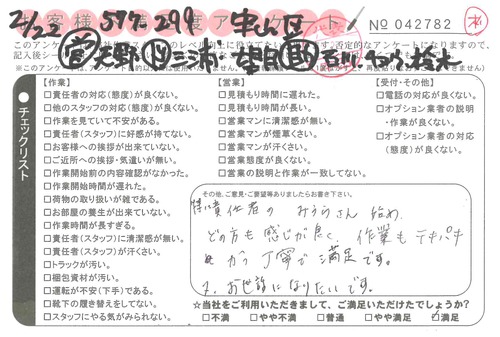 お客様満足度アンケート
№ 042782
2/22 597 299
このアンケートは
※このアンケートは
チェックリスト
【作業】
□責任者の対応(態度)が良くない。
□他のスタッフの対応(態度)が良くない。
□作業を見ていて不安がある。
□責任者(スタッフ)に好感が持てない。
□お客様への挨拶が出来ていない。
□ご近所への挨拶・気遣いが無い。
□作業開始前の内容確認がなかった。
□作業開始時間が遅れた。
□荷物の取り扱いが雑である。
□お部屋の養生が出来ていない。
□作業時間が長すぎる。
□責任者(スタッフ)に清潔感が無い。
□責任者(スタッフ)が汗くさい。
□トラックが汚い。
□梱包資材が汚い。
□運転が不安(下手)である。
□靴下の履き替えをしてない。
□スタッフにやる気がみられない。
【営業】
□見積もり時間に遅れた。
□見積もり時間が長い。
□営業マンに清潔感が無い。
□営業マンが煙草くさい。
□営業マンが汗くさい。
□営業態度が良くない。
□営業の説明と作業が一致してない。
【受付・その他】
□電話の対応が良くない。
□オプション業者の説明
・作業が良くない。
□オプション業者の対応
(態度)が良くない。
その他、ご意見・ご要望等ありましたらお書き下さい。
特に責任者の みうらさん始め、
どの方も感じが良く、作業もテキパキ
かつ丁寧で満足です。
又、お世話になりたいです。
☆当社をご利用いただきまして、ご満足いただけたでしょうか?
□不満 □やや不満 □普通 □やや満足 □満足